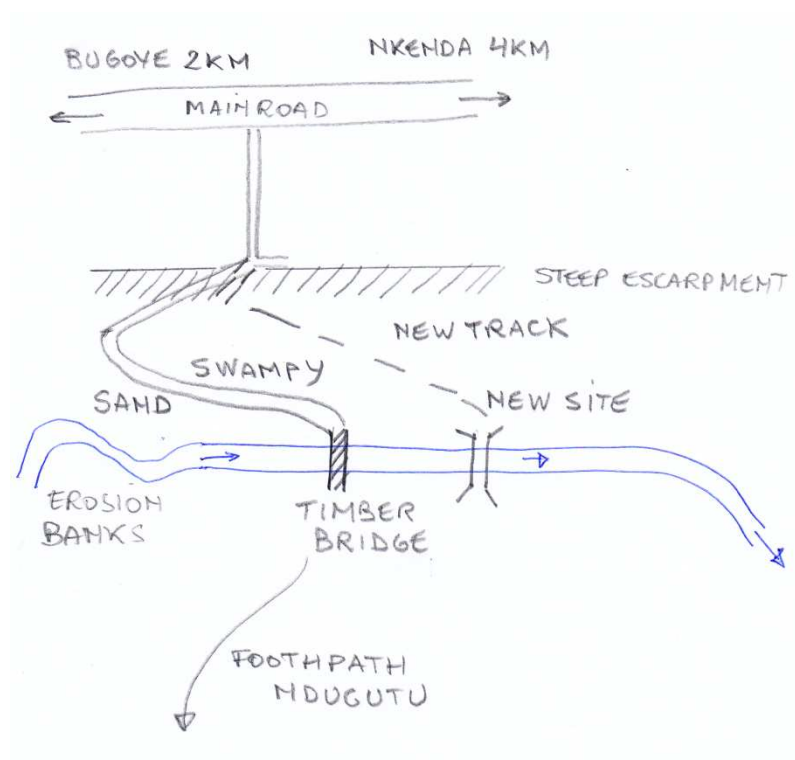 BUGOYE 2KM
NKENDA 4KM
MAIN ROAD
STEEP ESCARPMENT
NEW TRACK
SWAMPY
SAND
NEW SITE
EROSION
BANKS
TIMBER
BRIDGE
FOOTHPATH
NDUGUTU